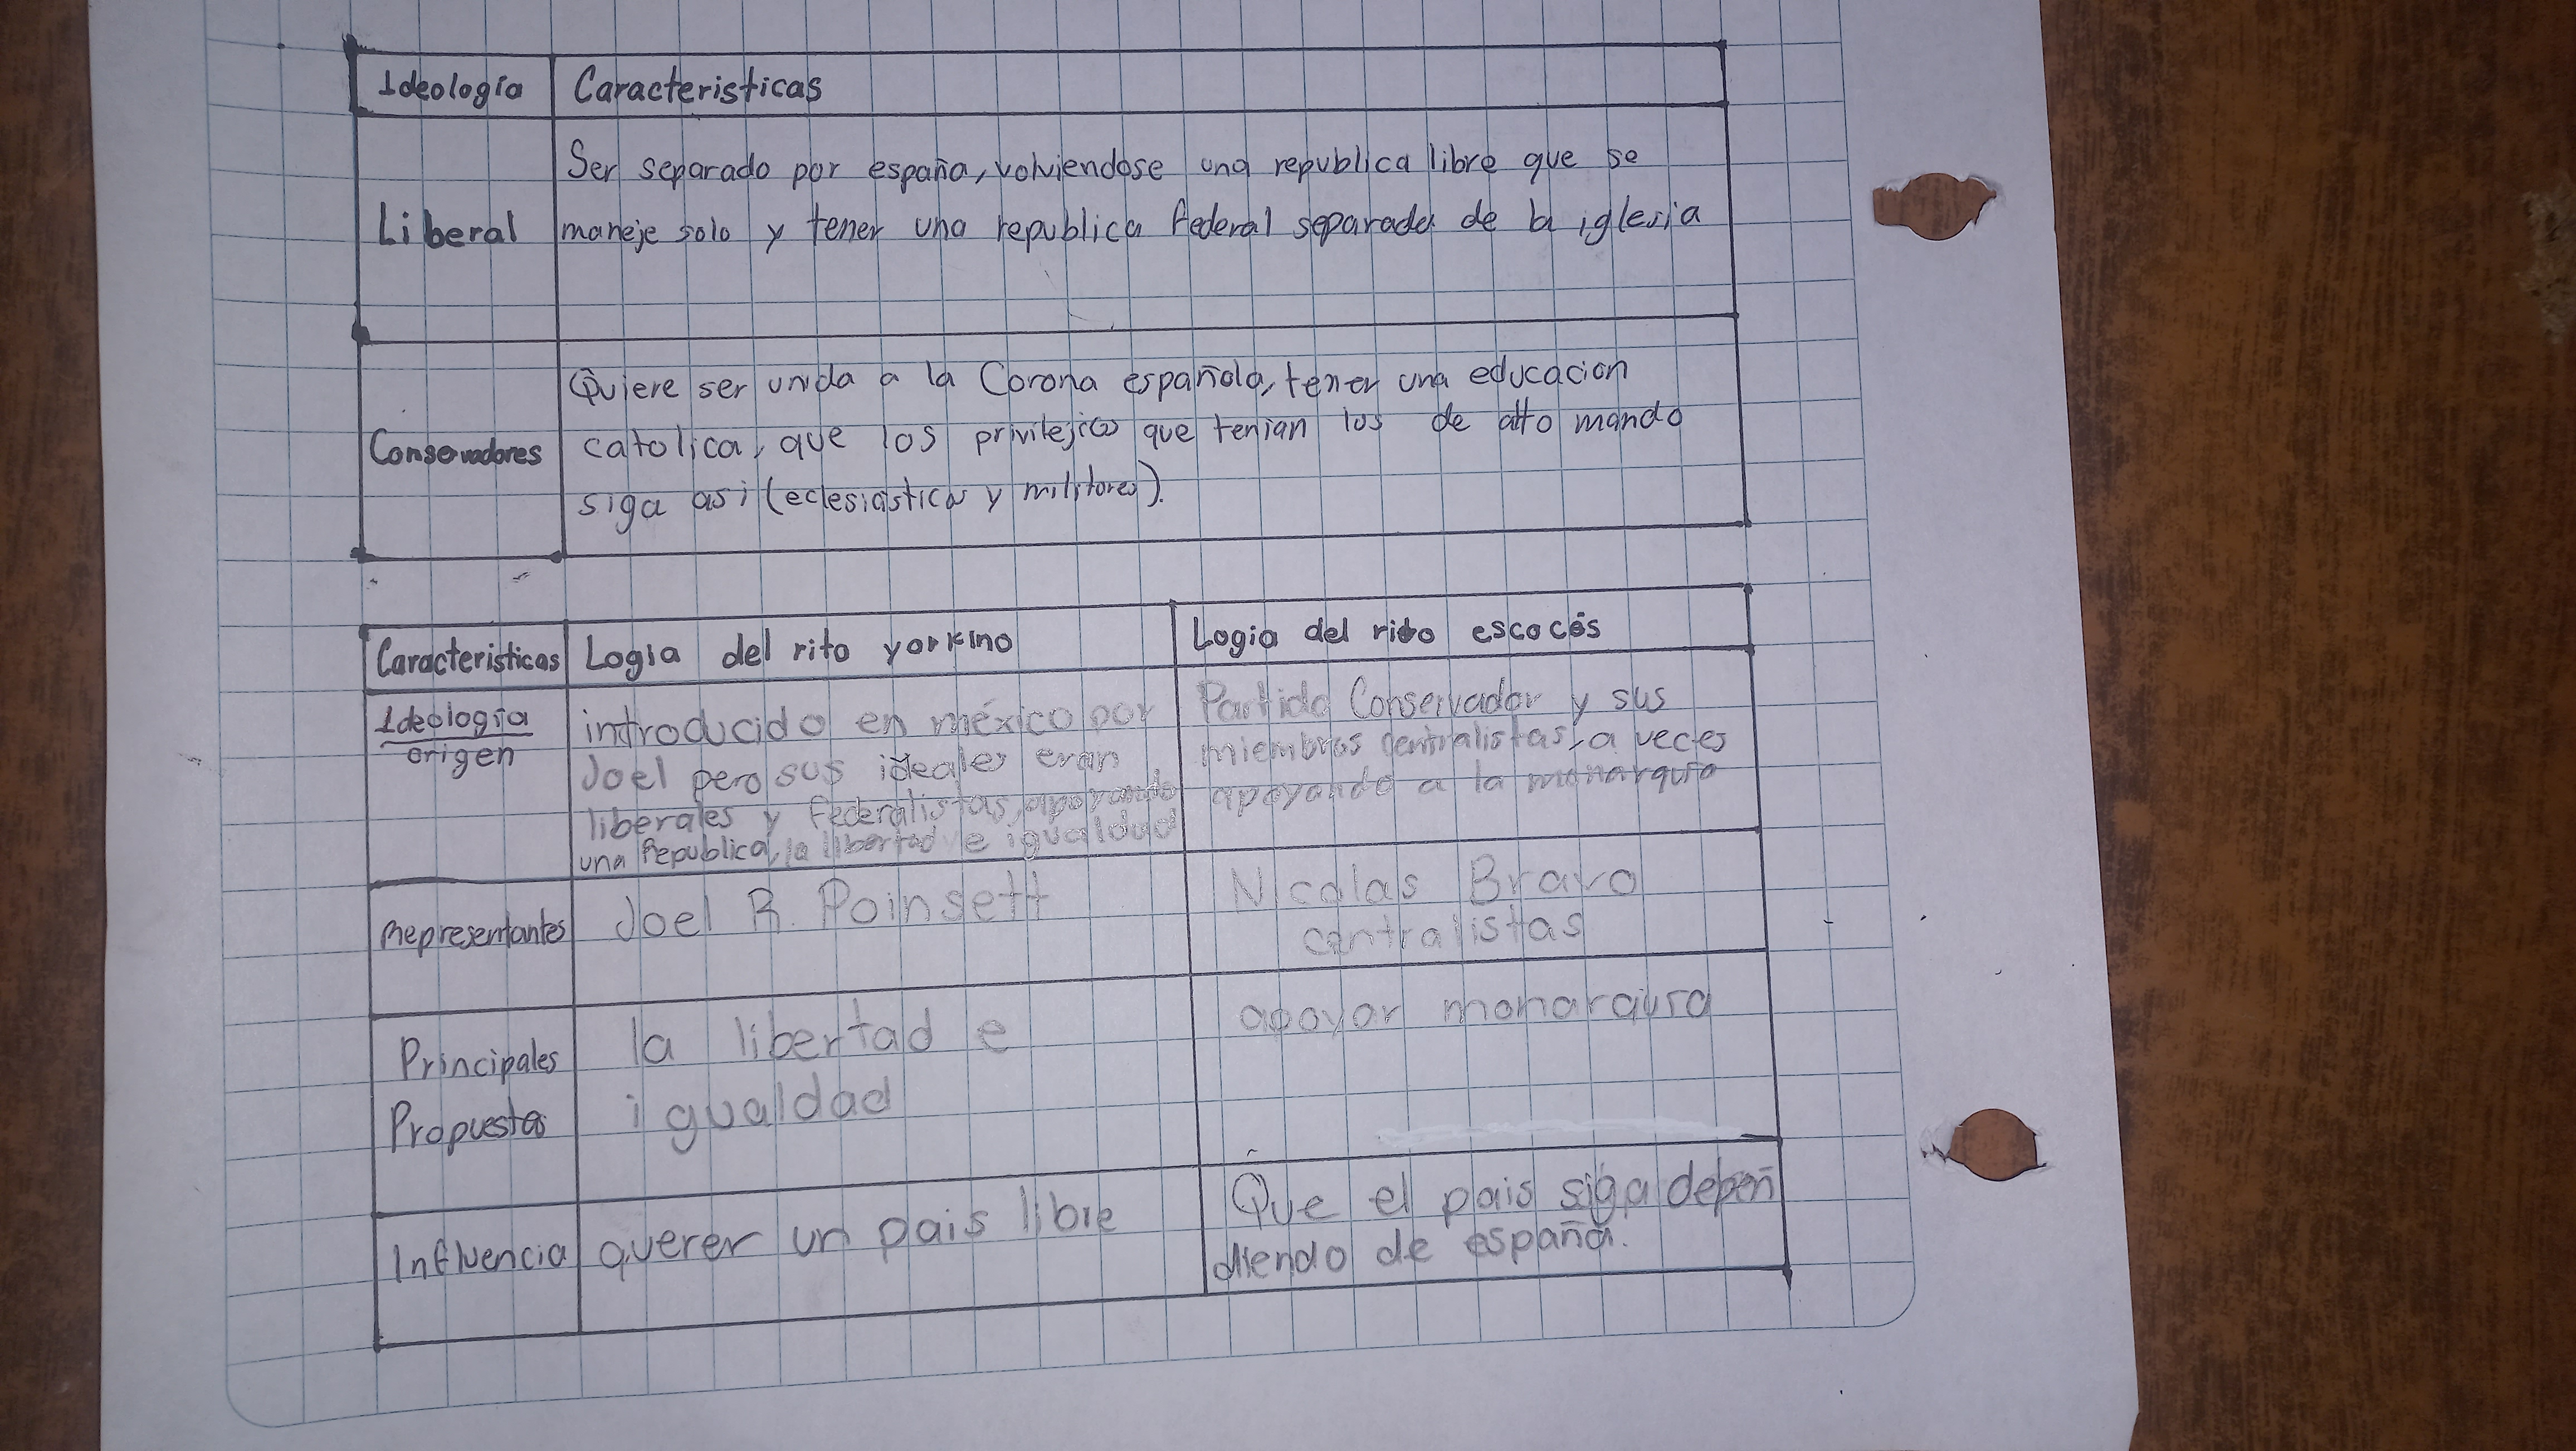 Ideología Caracteristicas
Liberal
Ser separado por españa, volviendose una republica libre que se
maneje solo y tener una republica federal separada de la iglesia
Conservadores
Quiere ser unida a la Corona española, tener una educacion
catolica, que los privilejios que tenian los de alto mando
siga asi (eclesiásticos y militares).
Caracteristicas Logia del rito yorkino Logia del rito escocés
Ideología
origen
introducido en méxico por
Joel pero sus ideales eran
liberales y federalistas, apoyando
una Republica, la libertad e igualdad
Partido Conservador y sus
miembros centralistas, a veces
apoyando a la monarquia
Representantes
Joel R. Poinsett
Nicolas Bravo
centralistas
Principales
Propuestas
la libertad e
igualdad
apoyar monarquia
Influencia
querer un pais libre
Que el pais siga depen
diendo de españa.